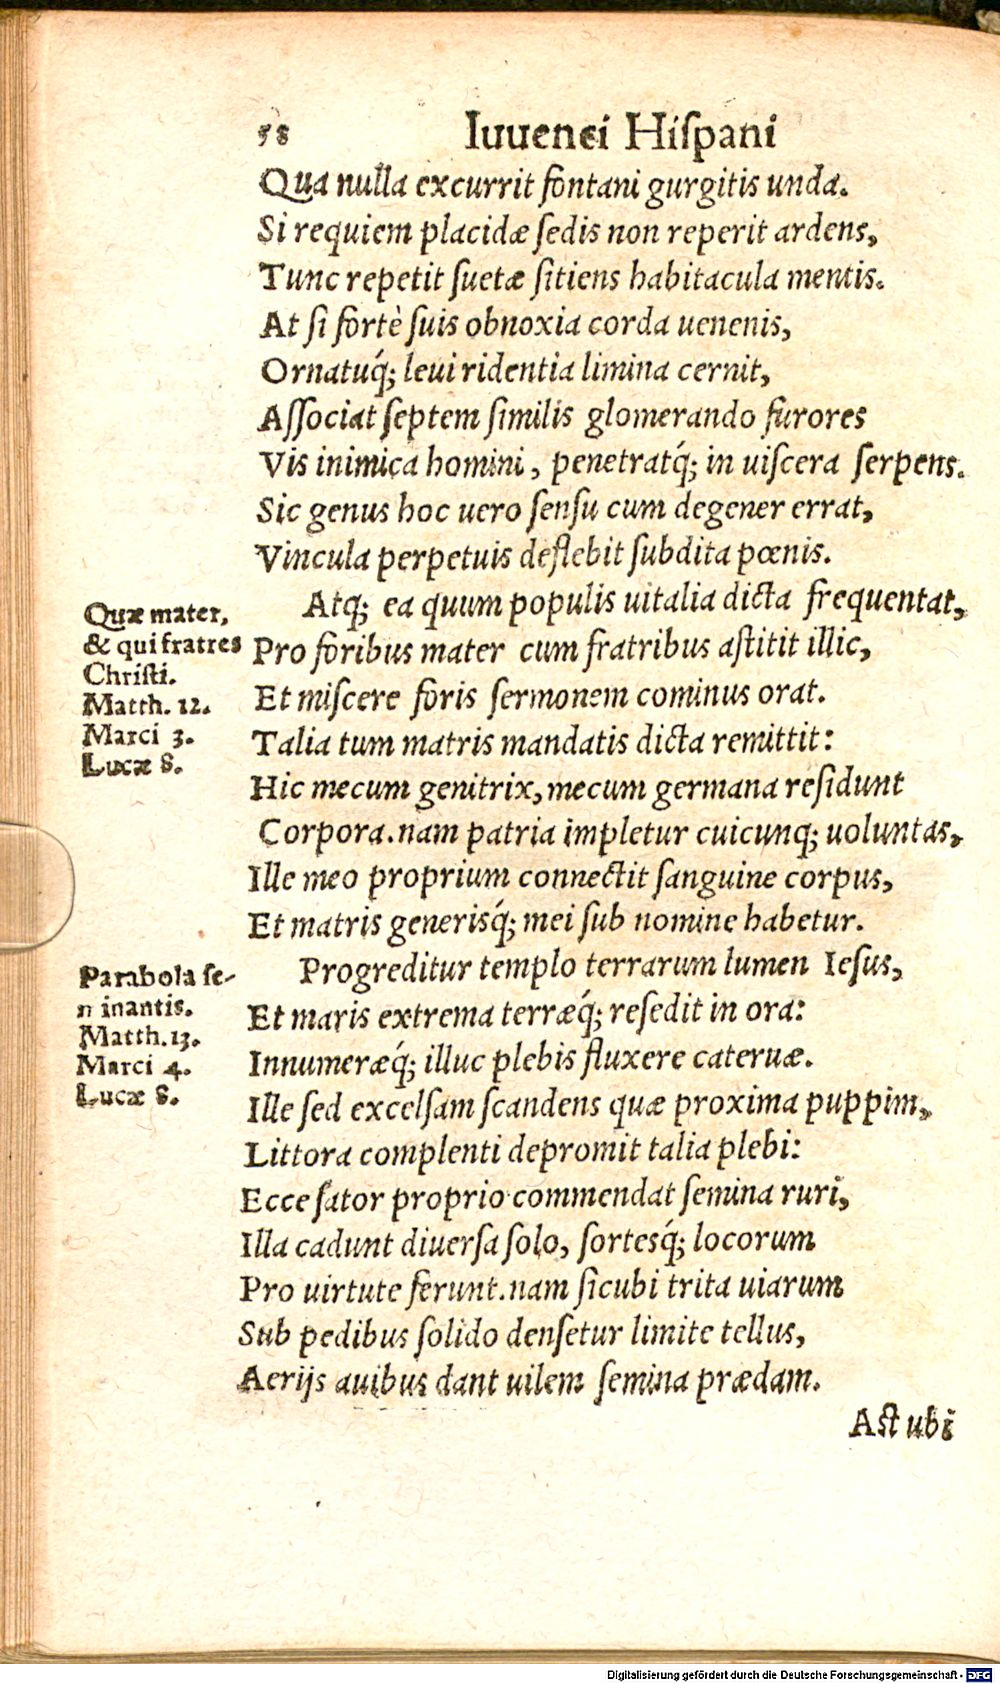 58 Iuuenci Hiſpani
Qua nulla excurrit fontani gurgitis unda.
Si requiem placidæ ſedis non reperit ardens,
Tunc repetit ſuetæ ſitiens habitacula mentis.
At ſi fortè ſuis obnoxia corda uenenis,
Ornatuq́; leui ridentia limina cernit,
Aſſociat ſeptem ſimilis glomerando furores
Vis inimica homini, penetratq́; in uiſcera ſerpens.
Sic genus hoc uero ſenſu cum degener errat,
Vincula perpetuis deflebit ſubdita pœnis.
Atq; ea quum populis uitalia dicta frequentat,
Pro foribus mater cum fratribus aſtitit illic,
Et miſcere foris ſermonem cominus orat.
Talia tum matris mandatis dicta remittit:
Hic mecum genitrix, mecum germana reſidunt
Corpora. nam patria impletur cuicunq; uoluntas,
Ille meo proprium connectit ſanguine corpus,
Et matris generisq́; mei ſub nomine habetur.
Quæ mater,
& qui fratres
Chriſti.
Matth. 12.
Marci 3.
Lucæ 8.
Progreditur templo terrarum lumen Ieſus,
Et maris extrema terræq́; reſedit in ora:
Innumeræq́; illuc plebis fluxere cateruæ.
Ille ſed excelſam ſcandens quæ proxima puppim,
Littora complenti depromit talia plebi:
Ecce ſator proprio commendat ſemina ruri,
Illa cadunt diuerſa ſolo, ſortesq́; locorum
Pro uirtute ferunt. nam ſicubi trita uiarum
Sub pedibus ſolido denſetur limite tellus,
Aerijs auibus dant uilem ſemina prædam.
Parabola ſe-
minantis.
Matth. 13.
Marci 4.
Lucæ 8.
Aſt ubi
Digitalisierung gefördert durch die Deutsche Forschungsgemeinschaft - DFG